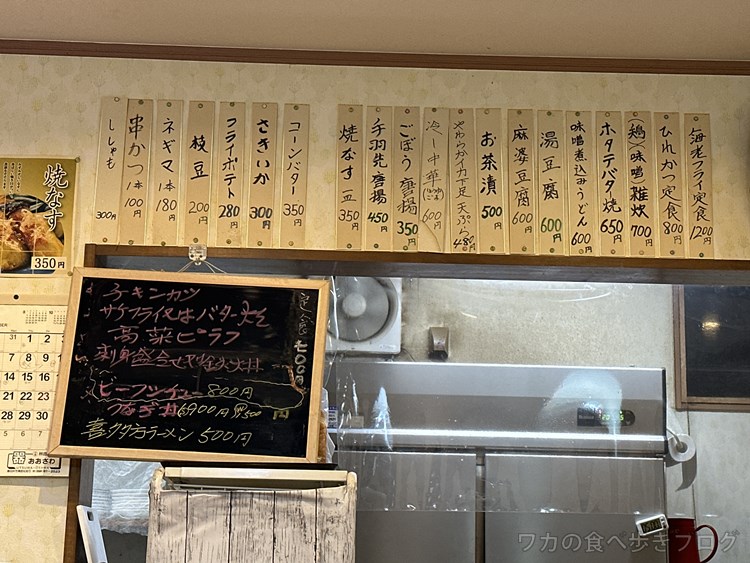 海老フライ定食 1200円
ひれかつ定食 800円
(鶏)(味噌)雑炊 700円
ホタテバター焼 650円
味噌煮込みうどん 600円
湯豆腐 600円
麻婆豆腐 600円
お茶漬 500円
やわらかイカ下足天ぷら 480円
冷し中華 600円
ごぼう唐揚 350円
手羽先唐揚 450円
焼なす 一皿 350円
コーンバター 350円
さきいか 300円
フライポテト 280円
枝豆 200円
ネギマ 1本 180円
串かつ 1本 100円
ししゃも 300円
焼なす
350円
チキンカツ
サケフライ又はバター焼
高菜ピラフ
刺身盛合せ
定食
700円
ビーフシチュー 800円
喜多方ラーメン 500円
31 1 2
7 8 9
14 15 16
21 22 23
28 29 30
おおさわ
ワカの食べ歩きブログ